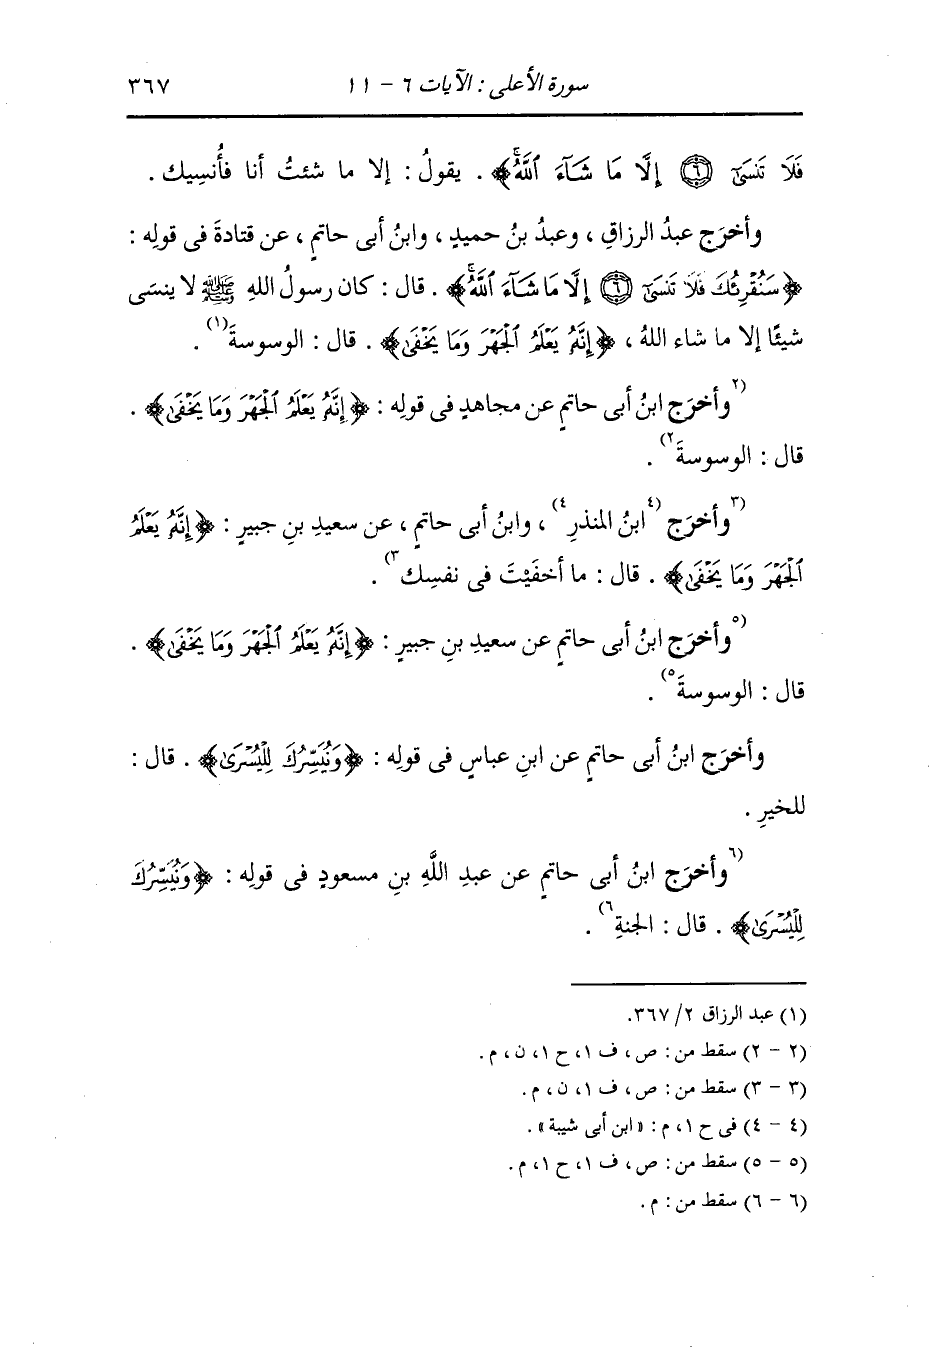 سورة الأعلى : الآيات ٦ - ١١ ٣٦٧
فَلَا تَنسَىٰٓ ۝٦ إِلَّا مَا شَآءَ ٱللَّهُۚ﴾ . يقولُ : إلا ما شئتُ أنا فأُنسِيك .
وأخرَج عبدُ الرزاقِ ، وعبدُ بنُ حميدٍ ، وابنُ أبى حاتمٍ ، عن قتادةَ فى قولِه :
﴿سَنُقْرِئُكَ فَلَا تَنسَىٰٓ ۝٦ إِلَّا مَا شَآءَ ٱللَّهُۚ﴾ . قال : كان رسولُ اللهِ ﷺ لا ينسَى
شيئًا إلا ما شاء اللهُ ، ﴿إِنَّهُۥ يَعْلَمُ ٱلْجَهْرَ وَمَا يَخْفَىٰ﴾ . قال : الوسوسةَ(١) .
(٢وأخرَج ابنُ أبى حاتمٍ عن مجاهدٍ فى قولِه : ﴿إِنَّهُۥ يَعْلَمُ ٱلْجَهْرَ وَمَا يَخْفَىٰ﴾ .
قال : الوسوسةَ٢) .
(٣وأخرَج (٤ابنُ المنذرِ٤) ، وابنُ أبى حاتمٍ ، عن سعيدِ بنِ جبيرٍ : ﴿إِنَّهُۥ يَعْلَمُ
ٱلْجَهْرَ وَمَا يَخْفَىٰ﴾ . قال : ما أخفَيْتَ فى نفسِك٣) .
(٥وأخرَج ابنُ أبى حاتمٍ عن سعيدِ بنِ جبيرٍ : ﴿إِنَّهُۥ يَعْلَمُ ٱلْجَهْرَ وَمَا يَخْفَىٰ﴾ .
قال : الوسوسةَ٥) .
وأخرَج ابنُ أبى حاتمٍ عن ابنِ عباسٍ فى قولِه : ﴿وَنُيَسِّرُكَ لِلْيُسْرَىٰ﴾ . قال :
للخيرِ .
(٦وأخرَج ابنُ أبى حاتمٍ عن عبدِ اللَّهِ بنِ مسعودٍ فى قولِه : ﴿وَنُيَسِّرُكَ
لِلْيُسْرَىٰ﴾ . قال : الجنةِ٦) .
(١) عبد الرزاق ٢/ ٣٦٧.
(٢ - ٢) سقط من : ص ، ف ١، ح ١، ن ، م .
(٣ - ٣) سقط من : ص ، ف ١، ن ، م .
(٤ - ٤) فى ح ١، م : « ابن أبى شيبة » .
(٥ - ٥) سقط من : ص ، ف ١، ح ١، م .
(٦ - ٦) سقط من : م .